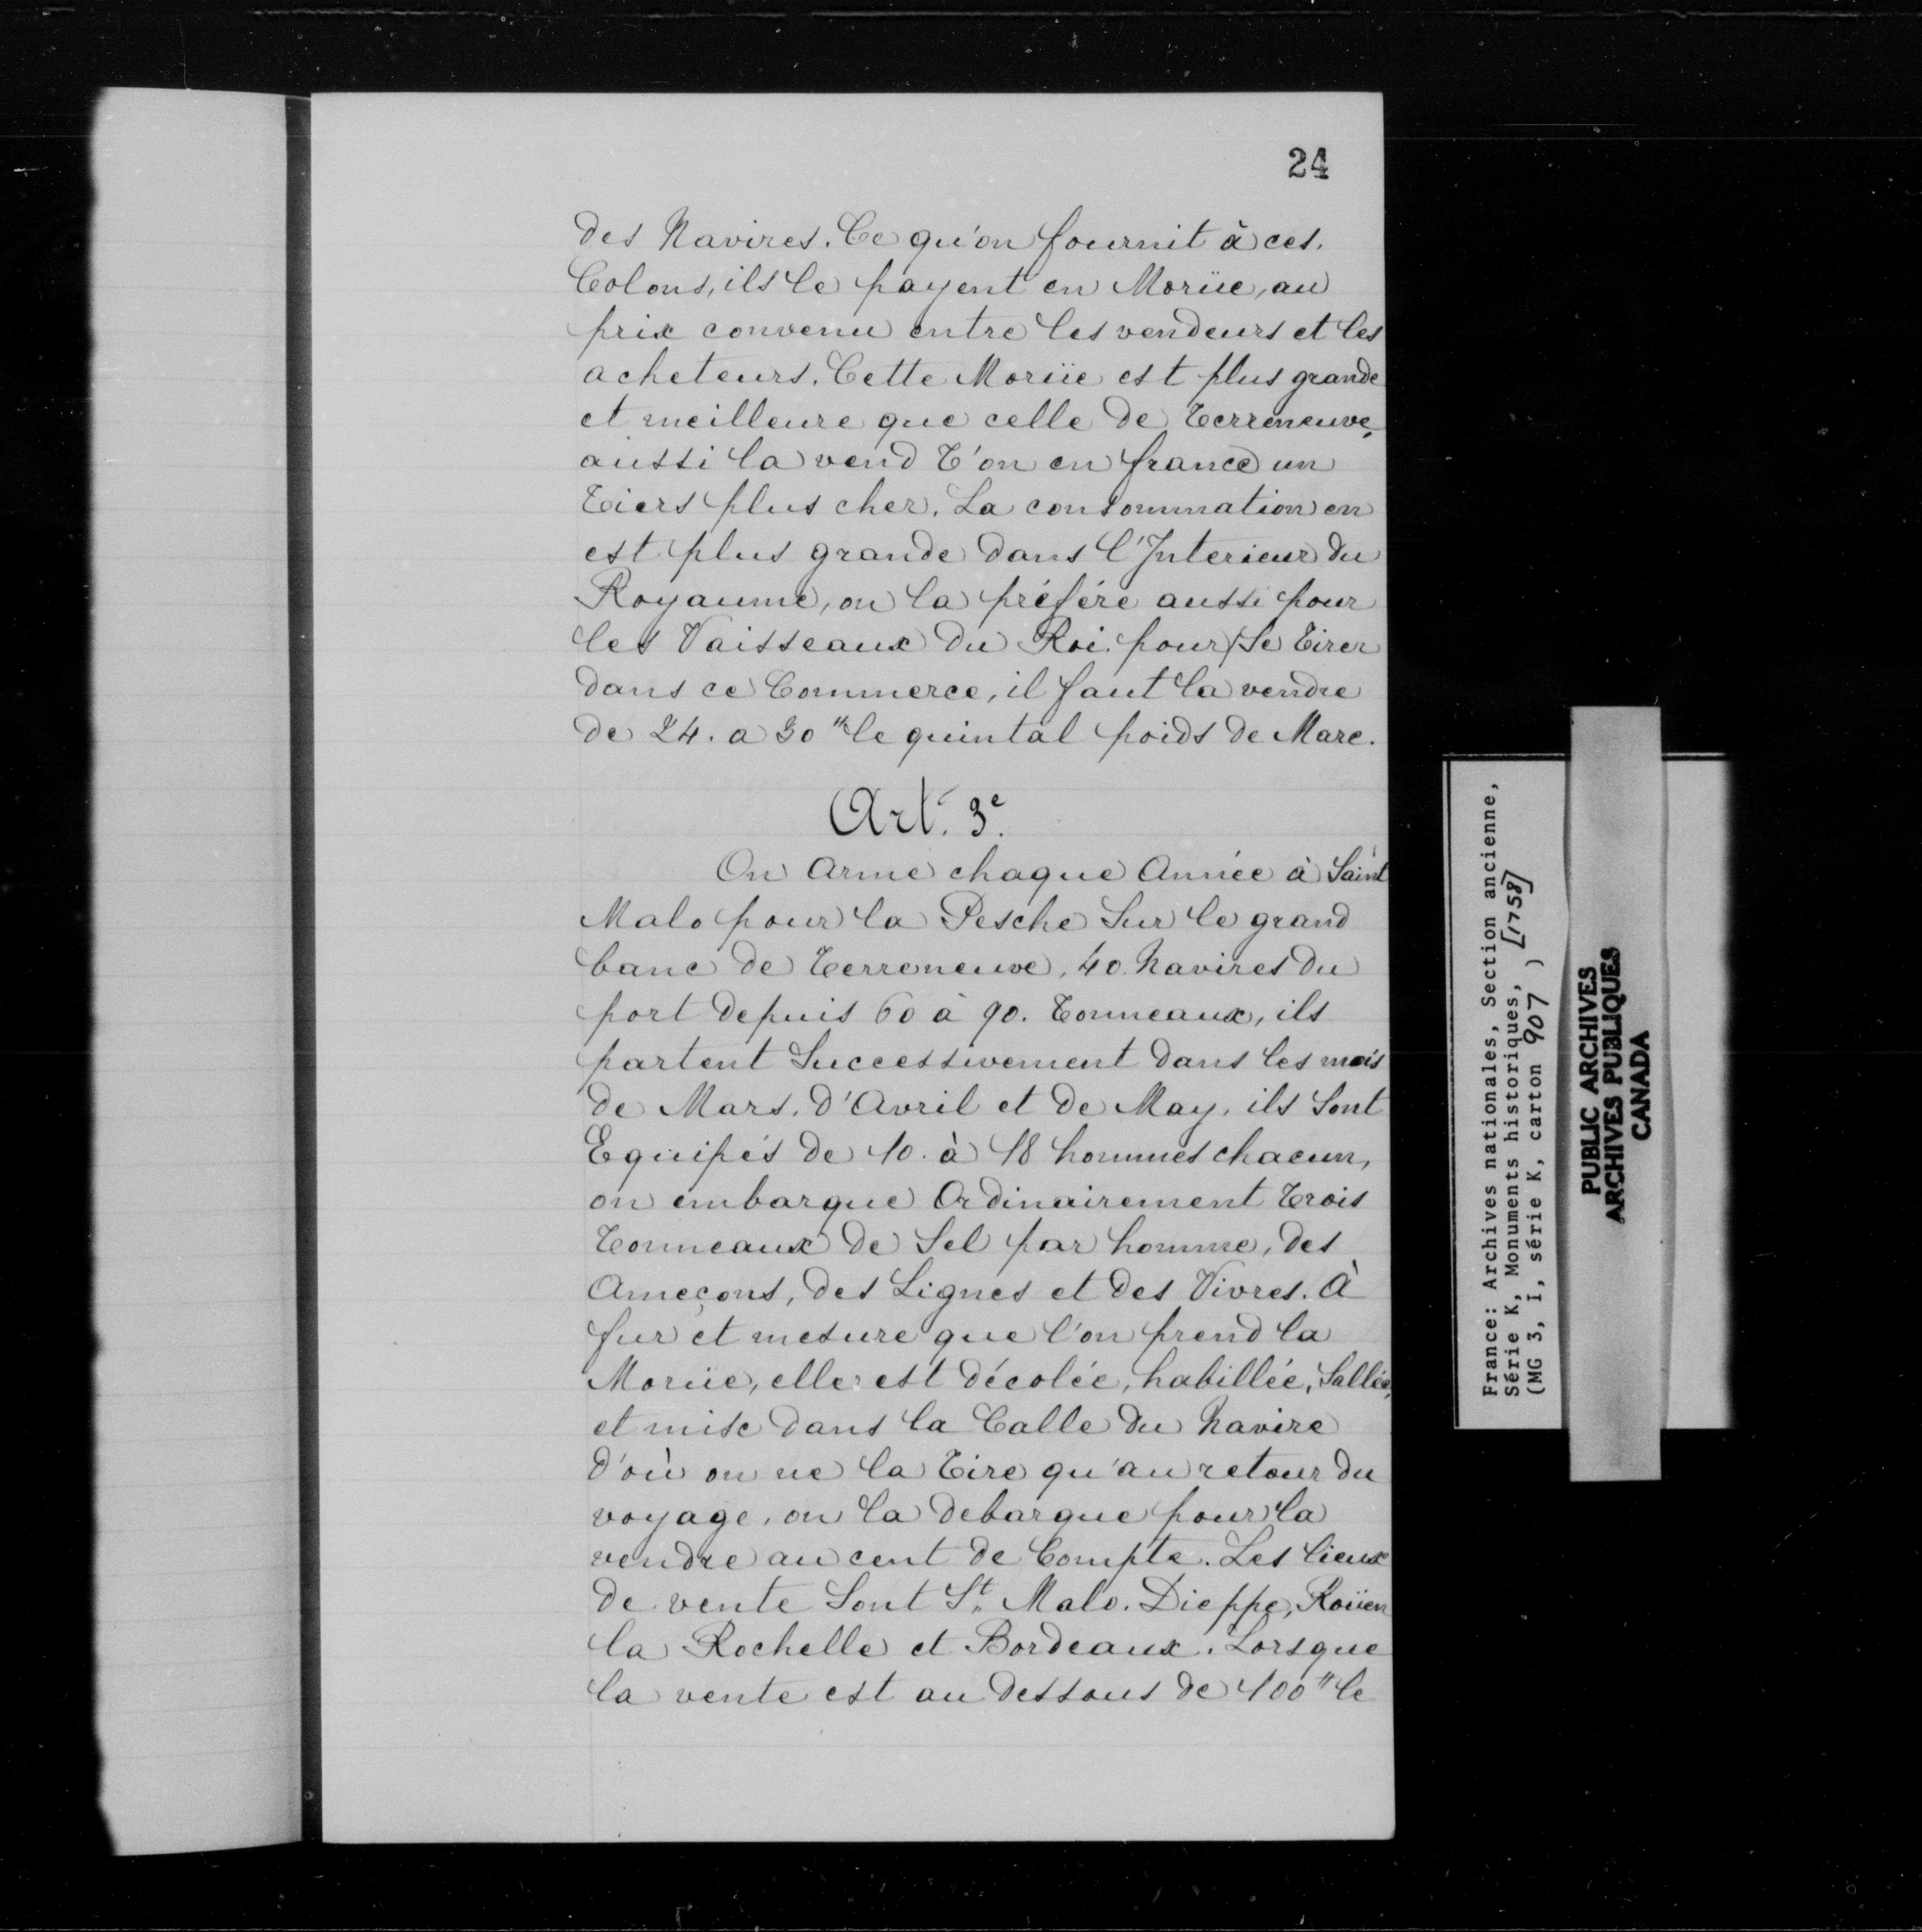 24
des Navires. Ce qu'on fournit à ces.
Colons, ils le payent en Moriie, au
prix convenu entre les vendeurs et les
acheteurs. Cette Moriie est plus grande
et meilleure que celle de Terreneuve,
aussi la vend t'on en france un
tiers plus cher. La consommation en
est plus grande dans l'Interieur du
Royaume, on la préfére aussi pour
les Vaisseaux du Roi. pour se tirer
dans ce Commerce, il faut la vendre
de 24. a 30 # le quintal poids de Marc.
Art. 3e.
On Arme chaque Année à Saint
Malo pour la Pesche Sur le grand
banc de Terreneuve, 40. Navires du
port depuis 60 à 90. tonneaux, ils
partent Successivement dans les mois
de Mars, d'Avril et de May, ils Sont
Equipés de 10. à 18 hommes chacun,
on embarque Ordinairement trois
tonneaux de Sel par homme, des
Ameçons, des Lignes et des Vivres. à
fur et mesure que l'on prend la
Moriie, elle est décolée, habillée, Sallée,
et mise dans la Calle du Navire
d'où on ne la tire qu'au retour du
voyage, on la debarque pour la
vendre au cent de Compte. Les lieux
de vente Sont St. Malo. Dieppe, Roüen
la Rochelle et Bordeaux. Lorsque
la vente est au dessous de 400 # le
France: Archives nationales, Section ancienne,
Série K, Monuments historiques, [1758]
(MG 3, I, série K, carton 907 )
PUBLIC ARCHIVES
ARCHIVES PUBLIQUES
CANADA